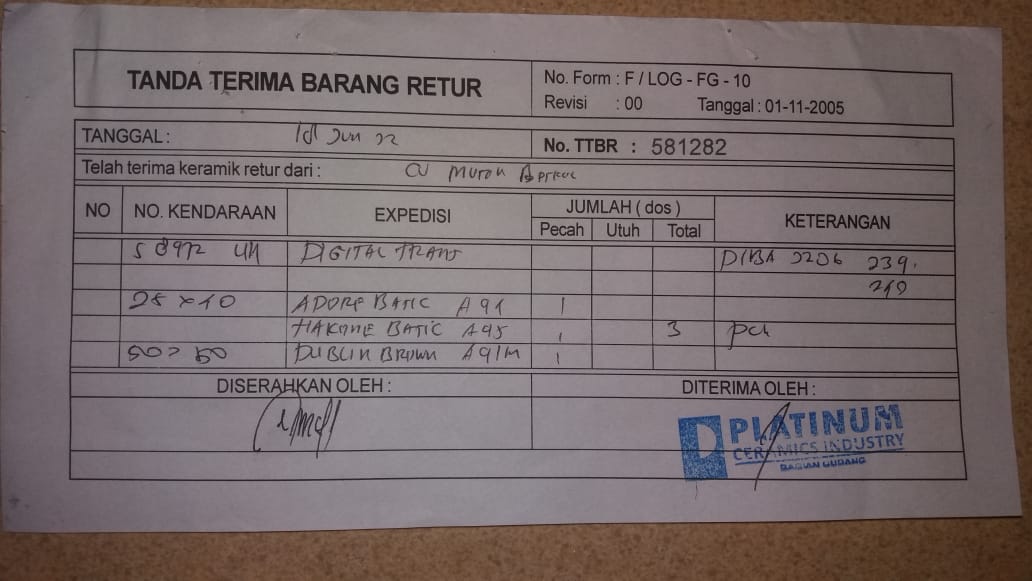 TANDA TERIMA BARANG RETUR
No. Form : F / LOG - FG - 10
Revisi : 00 Tanggal : 01-11-2005
TANGGAL : Jun 22
No. TTBR : 581282
Telah terima keramik retur dari : CV Murah
NO NO. KENDARAAN EXPEDISI JUMLAH ( dos ) KETERANGAN
Pecah Utuh Total
DIGITAL TRANS 239.
240
25 x 40 ADORE BATIC A 91 1
HAKONE BATIC A95 1 3 pch
50 x 50 DUBLIN BROWN 1
DISERAHKAN OLEH : DITERIMA OLEH :
PLATINUM
CERAMICS INDUSTRY
BAGIAN GUDANG